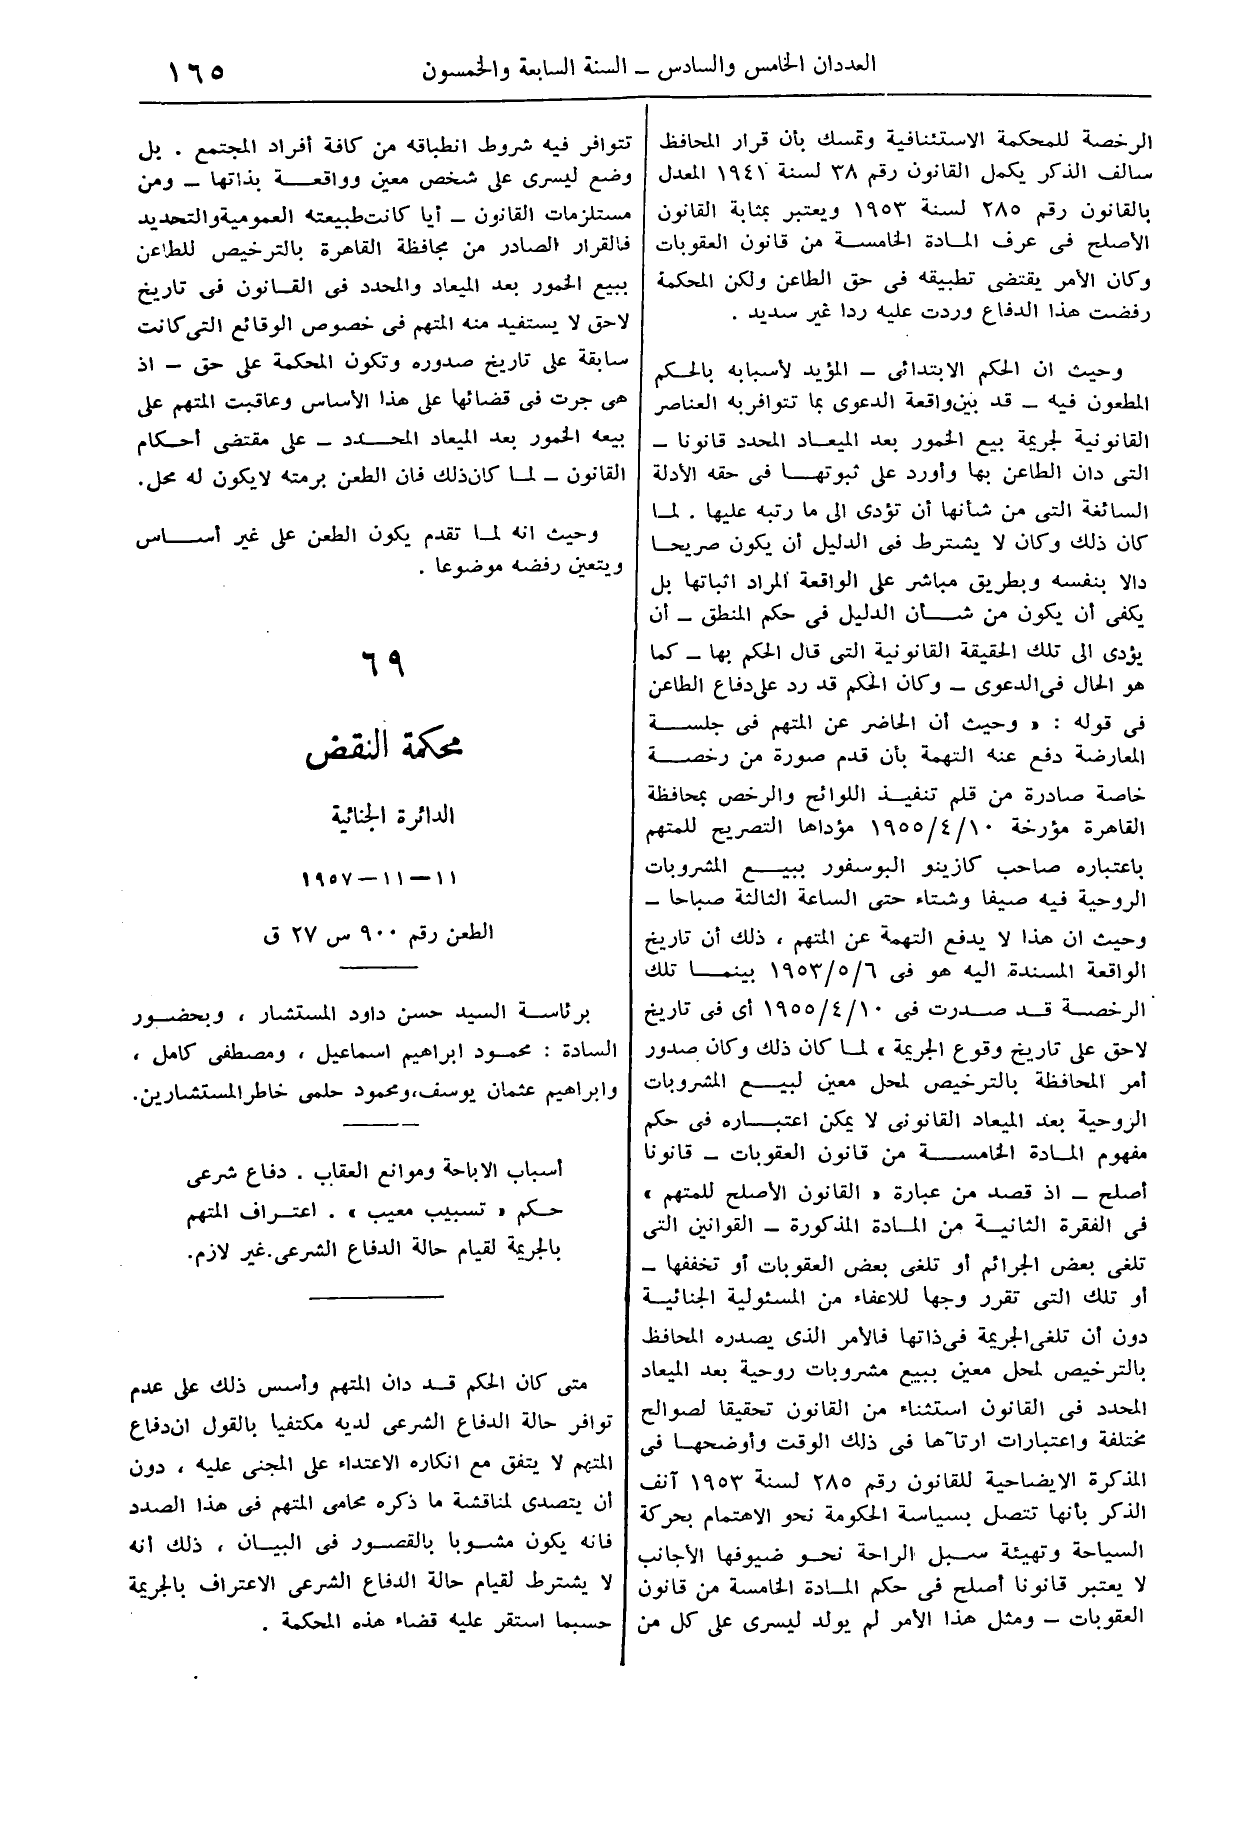 العددان الخامس والسادس – السنة السابعة والخمسون
١٦٥
الرخصة للمحكمة الاستئنافية وتمسك بأن قرار المحافظ
سالف الذكر يكمل القانون رقم ٣٨ لسنة ١٩٤١ المعدل
بالقانون رقم ٢٨٥ لسنة ١٩٥٣ ويعتبر بمثابة القانون
الأصلح فى عرف المادة الخامسة من قانون العقوبات
وكان الأمر يقتضى تطبيقه فى حق الطاعن ولكن المحكمة
رفضت هذا الدفاع وردت عليه ردا غير سديد .
وحيث ان الحكم الابتدائى – المؤيد لأسبابه بالحكم
المطعون فيه – قد بين واقعة الدعوى بما تتوافر به العناصر
القانونية لجريمة بيع الخمور بعد الميعاد المحدد قانونا –
التى دان الطاعن بها وأورد على ثبوتها فى حقه الأدلة
السائغة التى من شأنها أن تؤدى الى ما رتبه عليها . لما
كان ذلك وكان لا يشترط فى الدليل أن يكون صريحا
دالا بنفسه وبطريق مباشر على الواقعة المراد اثباتها بل
يكفى أن يكون من شأن الدليل فى حكم المنطق – أن
يؤدى الى تلك الحقيقة القانونية التى قال الحكم بها – كما
هو الحال فى الدعوى – وكان الحكم قد رد على دفاع الطاعن
فى قوله : « وحيث أن الحاضر عن المتهم فى جلسة
المعارضة دفع عنه التهمة بأن قدم صورة من رخصة
خاصة صادرة من قلم تنفيذ اللوائح والرخص بمحافظة
القاهرة مؤرخة ١٩٥٥/٤/١٠ مؤداها التصريح للمتهم
باعتباره صاحب كازينو البوسفور ببيع المشروبات
الروحية فيه صيفا وشتاء حتى الساعة الثالثة صباحا –
وحيث ان هذا لا يدفع التهمة عن المتهم ، ذلك أن تاريخ
الواقعة المسندة اليه هو فى ١٩٥٣/٥/٦ بينما تلك
الرخصة قد صدرت فى ١٩٥٥/٤/١٠ أى فى تاريخ
لاحق على تاريخ وقوع الجريمة » لما كان ذلك وكان صدور
أمر المحافظة بالترخيص لمحل معين لبيع المشروبات
الروحية بعد الميعاد القانونى لا يمكن اعتباره فى حكم
مفهوم المادة الخامسة من قانون العقوبات – قانونا
أصلح – اذ قصد من عبارة « القانون الأصلح للمتهم »
فى الفقرة الثانية من المادة المذكورة – القوانين التى
تلغى بعض الجرائم أو تلغى بعض العقوبات أو تخففها –
أو تلك التى تقرر وجها للاعفاء من المسئولية الجنائية
دون أن تلغى الجريمة فى ذاتها فالأمر الذى يصدره المحافظ
بالترخيص لمحل معين ببيع مشروبات روحية بعد الميعاد
المحدد فى القانون استثناء من القانون تحقيقا لصوالح
مختلفة واعتبارات ارتآها فى ذلك الوقت وأوضحها فى
المذكرة الايضاحية للقانون رقم ٢٨٥ لسنة ١٩٥٣ آنف
الذكر بأنها تتصل بسياسة الحكومة نحو الاهتمام بحركة
السياحة وتهيئة سبل الراحة نحو ضيوفها الأجانب
لا يعتبر قانونا أصلح فى حكم المادة الخامسة من قانون
العقوبات – ومثل هذا الأمر لم يولد ليسرى على كل من
تتوافر فيه شروط انطباقه من كافة أفراد المجتمع . بل
وضع ليسرى على شخص معين وواقعة بذاتها – ومن
مستلزمات القانون – أيا كانت طبيعته العمومية والتحديد
فالقرار الصادر من محافظة القاهرة بالترخيص للطاعن
ببيع الخمور بعد الميعاد والمحدد فى القانون فى تاريخ
لاحق لا يستفيد منه المتهم فى خصوص الوقائع التى كانت
سابقة على تاريخ صدوره وتكون المحكمة على حق – اذ
هى جرت فى قضائها على هذا الأساس وعاقبت المتهم على
بيعه الخمور بعد الميعاد المحدد – على مقتضى أحكام
القانون – لما كان ذلك فان الطعن برمته لا يكون له محل.
وحيث انه لما تقدم يكون الطعن على غير أساس
ويتعين رفضه موضوعا .
٦٩
محكمة النقض
الدائرة الجنائية
١١-١١-١٩٥٧
الطعن رقم ٩٠٠ س ٢٧ ق
برئاسة السيد حسن داود المستشار ، وبحضور
السادة : محمود ابراهيم اسماعيل ، ومصطفى كامل ،
وابراهيم عثمان يوسف، ومحمود حلمى خاطر المستشارين.
أسباب الاباحة وموانع العقاب . دفاع شرعى
حكم « تسبيب معيب » . اعتراف المتهم
بالجريمة لقيام حالة الدفاع الشرعى. غير لازم.
متى كان الحكم قد دان المتهم وأسس ذلك على عدم
توافر حالة الدفاع الشرعى لديه مكتفيا بالقول ان دفاع
المتهم لا يتفق مع انكاره الاعتداء على المجنى عليه ، دون
أن يتصدى لمناقشة ما ذكره محامى المتهم فى هذا الصدد
فانه يكون مشوبا بالقصور فى البيان ، ذلك أنه
لا يشترط لقيام حالة الدفاع الشرعى الاعتراف بالجريمة
حسبما استقر عليه قضاء هذه المحكمة .